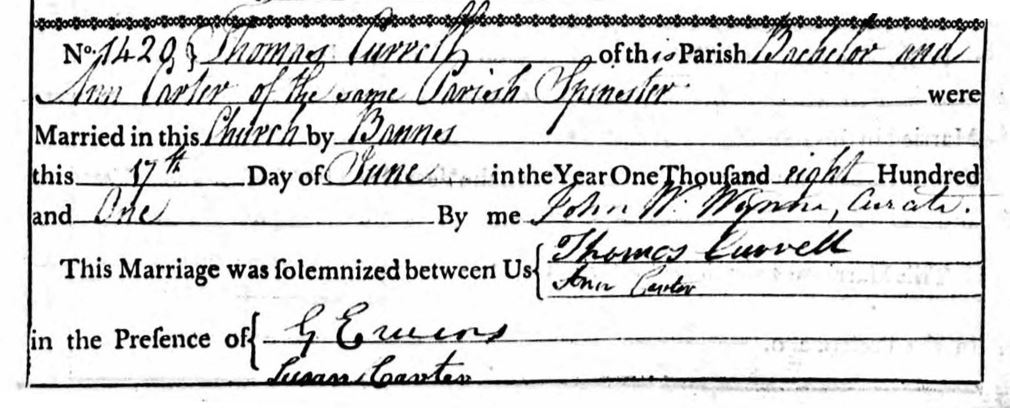 No. 1420 } Thomas Currell of this Parish Bachelor and
Ann Carter of the same Parish Spinster were
Married in this Church by Bannes
this 17th Day of June in the Year One Thouſand eight Hundred
and One By me John W. Wynne, Curate.
This Marriage was ſolemnized between Us { Thomas Currell
Ann Carter
in the Preſence of { G
Susan Carter